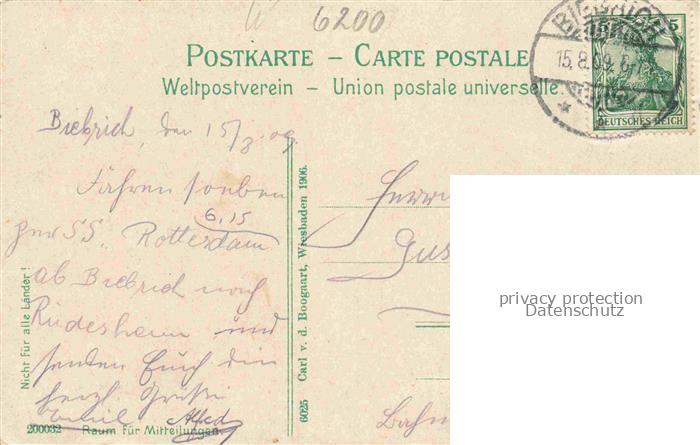 6200
POSTKARTE – CARTE POSTALE
Weltpostverein – Union postale universelle.
BIEBRICH
15.8.09. 6-7
5
DEUTSCHES REICH
Biebrich, den 15/8 09
Fahren soeben
6.15
per SS. Rotterdam
ab Biebrich nach
Rüdesheim und
senden Euch die
herzl Grüße
Emil Alfred
Nicht für alle Länder!
200032 Raum für Mitteilungen.
6025 Carl v. d. Boogaart, Wiesbaden 1906.
Herrn
Gus
Bahn
privacy protection
Datenschutz